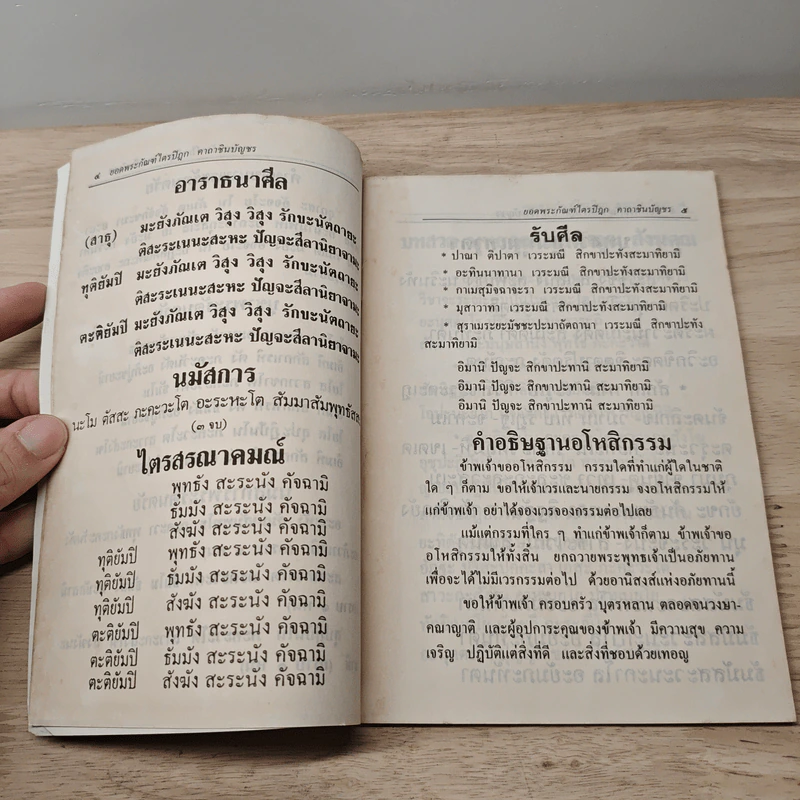 ๔ ยอดพระกัณฑ์ไตรปิฎก คาถาชินบัญชร
อาราธนาศีล
(สาธุ) มะยังภัณเต วิสุง วิสุง รักขะนัตถายะ
ติสะระเนนะสะหะ ปัญจะสีลานิยาจามะ
ทุติยัมปิ มะยังภัณเต วิสุง วิสุง รักขะนัตถายะ
ติสะระเนนะสะหะ ปัญจะสีลานิยาจามะ
ตะติยัมปิ มะยังภัณเต วิสุง วิสุง รักขะนัตถายะ
ติสะระเนนะสะหะ ปัญจะสีลานิยาจามะ
นมัสการ
นะโม ตัสสะ ภะคะวะโต อะระหะโต สัมมาสัมพุทธัสสะ
(๓ จบ)
ไตรสรณาคมณ์
พุทธัง สะระนัง คัจฉามิ
ธัมมัง สะระนัง คัจฉามิ
สังฆัง สะระนัง คัจฉามิ
ทุติยัมปิ พุทธัง สะระนัง คัจฉามิ
ทุติยัมปิ ธัมมัง สะระนัง คัจฉามิ
ทุติยัมปิ สังฆัง สะระนัง คัจฉามิ
ตะติยัมปิ พุทธัง สะระนัง คัจฉามิ
ตะติยัมปิ ธัมมัง สะระนัง คัจฉามิ
ตะติยัมปิ สังฆัง สะระนัง คัจฉามิ
ยอดพระกัณฑ์ไตรปิฎก คาถาชินบัญชร ๕
รับศีล
* ปาณา ติปาตา เวระมณี สิกขาปะทังสะมาทิยามิ
* อะทินนาทานา เวระมณี สิกขาปะทังสะมาทิยามิ
* กาเมสุมิจฉาจะรา เวระมณี สิกขาปะทังสะมาทิยามิ
* มุสาวาทา เวระมณี สิกขาปะทังสะมาทิยามิ
* สุราเมระยะมัชชะปะมาถัตถานา เวระมณี สิกขาปะทัง
สะมาทิยามิ
อิมานิ ปัญจะ สิกขาปะทานิ สะมาทิยามิ
อิมานิ ปัญจะ สิกขาปะทานิ สะมาทิยามิ
อิมานิ ปัญจะ สิกขาปะทานิ สะมาทิยามิ
คำอธิษฐานอโหสิกรรม
ข้าพเจ้าขออโหสิกรรม กรรมใดที่ทำแก่ผู้ใดในชาติ
ใด ๆ ก็ตาม ขอให้เจ้าเวรและนายกรรม จงอโหสิกรรมให้
แก่ข้าพเจ้า อย่าได้จองเวรจองกรรมต่อไปเลย
แม้แต่กรรมที่ใคร ๆ ทำแก่ข้าพเจ้าก็ตาม ข้าพเจ้าขอ
อโหสิกรรมให้ทั้งสิ้น ยกถวายพระพุทธเจ้าเป็นอภัยทาน
เพื่อจะได้ไม่มีเวรกรรมต่อไป ด้วยอานิสงส์แห่งอภัยทานนี้
ขอให้ข้าพเจ้า ครอบครัว บุตรหลาน ตลอดจนวงษา-
คณาญาติ และผู้อุปการะคุณของข้าพเจ้า มีความสุข ความ
เจริญ ปฏิบัติแต่สิ่งที่ดี และสิ่งที่ชอบด้วยเทอญ